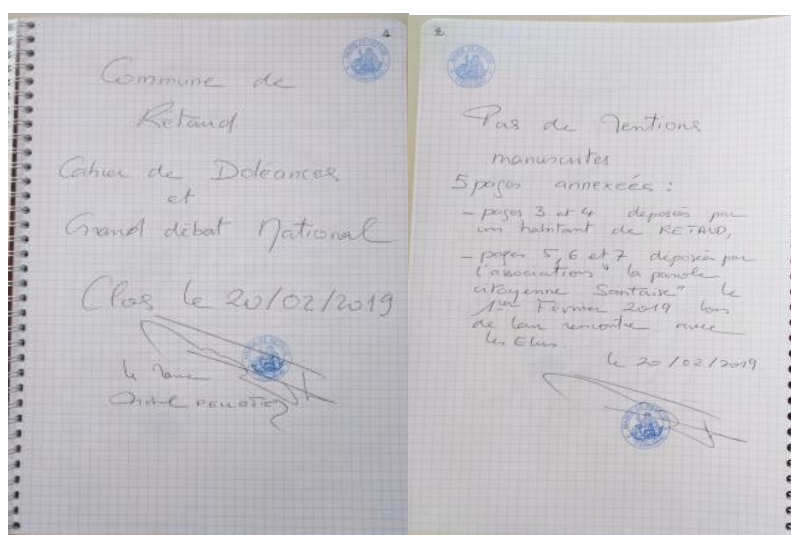 1
Commune de
Rétaud
Cahier de Doléances
et
Grand débat National
Clos le 20/02/2019
le Maire
2
Pas de Mentions
manuscrites
5 pages annexées :
- pages 3 et 4 déposées par
un habitant de RETAUD,
- pages 5, 6 et 7 déposées par
l'association "la parole
citoyenne Saintaise" le
1er Février 2019 lors
de leur rencontre avec
les Elus.
le 20/02/2019